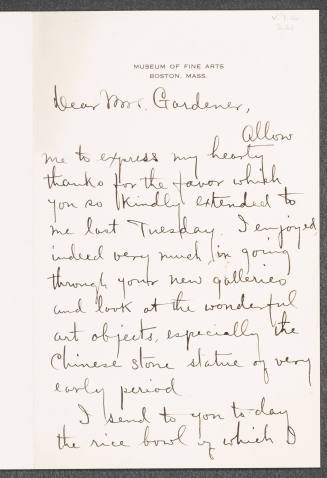 MUSEUM OF FINE ARTS
BOSTON, MASS.
Dear Mrs. Gardener,
Allow
me to express my hearty
thanks for the favor which
you so kindly extended to
me last Tuesday. I enjoyed
indeed very much in going
through your new galleries
and look at the wonderful
art objects, especially the
Chinese stone statue of very
early period
I send to you to-day
the rice bowl of which I